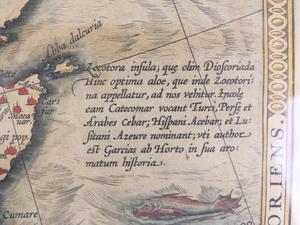 Diba dalcuria
Zocotora insula; quę olim Dioscoriada
Hinc optima aloe, que inde Zocotori-
na appellatur, ad nos vehitur. Incolę
eam Catecomar vocant Turci, Persę et
Arabes Cebar; Hispani Acebar; et Lu-
sitani Azeure nominant; vti author
est Garcias ab Horto in sua aro-
matum historia.
Cumare
ORIENS.